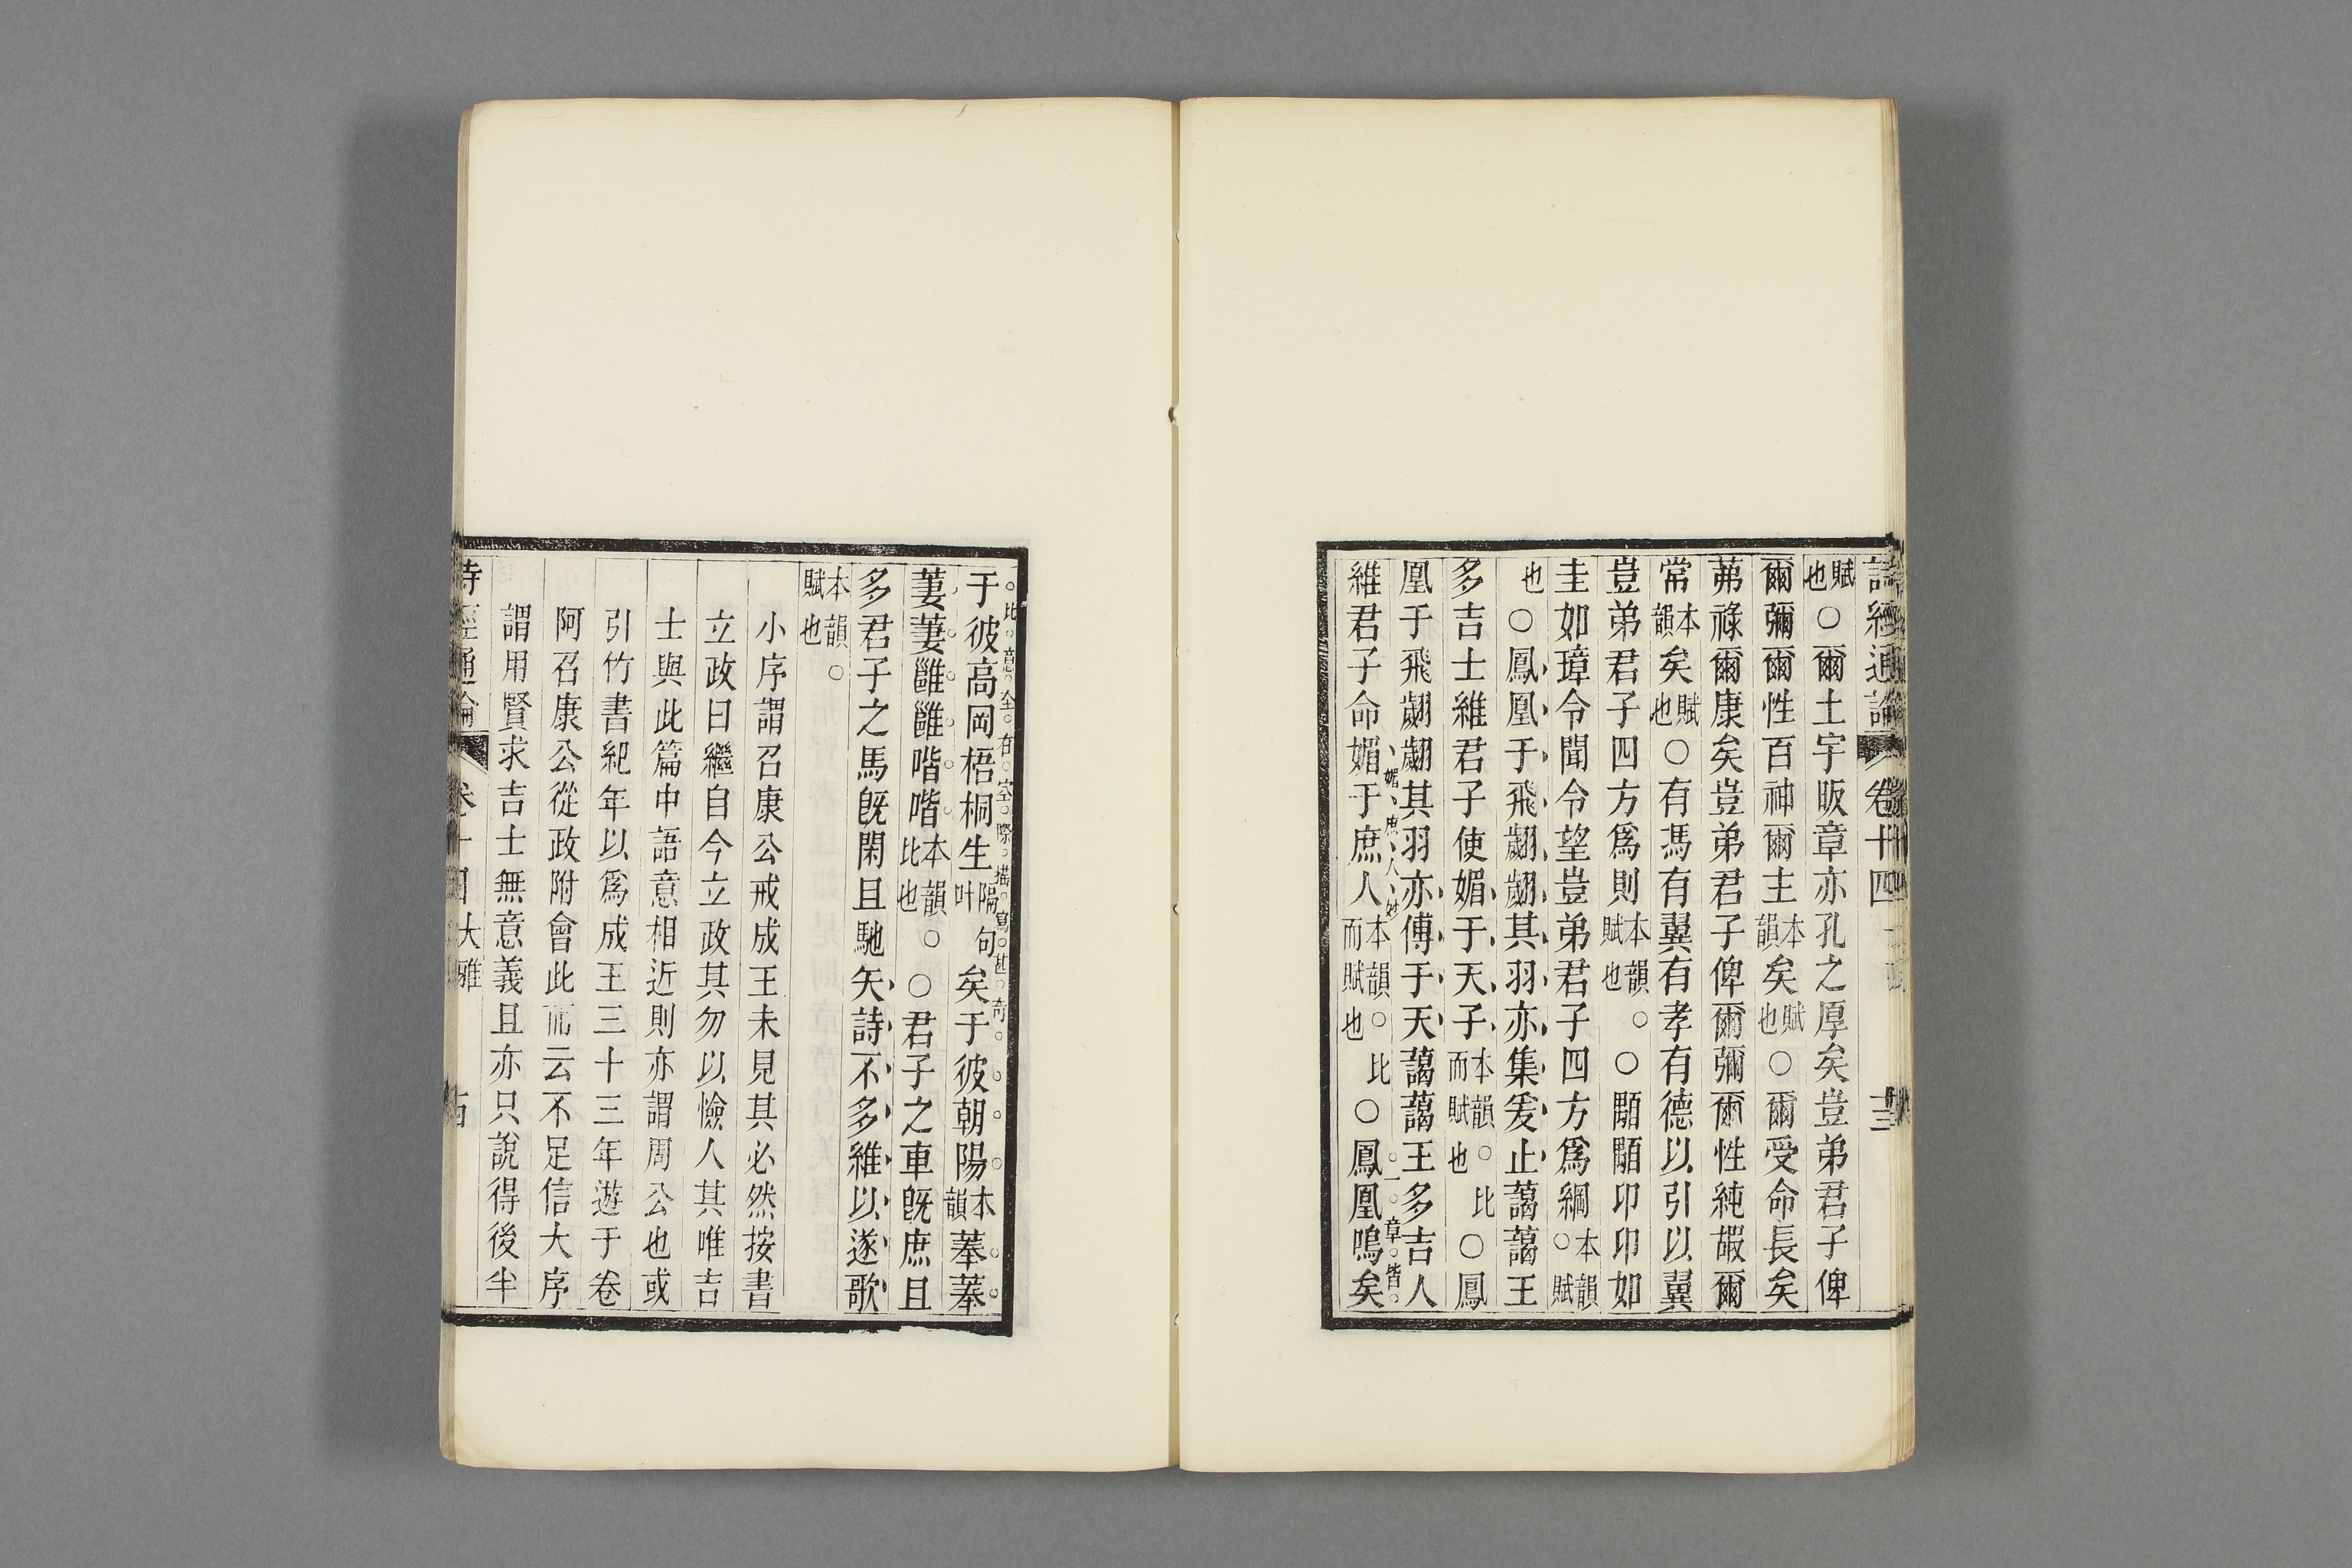 詩經通論 卷十四 十三
賦也○爾土宇昄章亦孔之厚矣豈弟君子俾
爾彌爾性百神爾主本韻矣賦也○爾受命長矣
茀祿爾康矣豈弟君子俾爾彌爾性純嘏爾
常本韻矣賦也○有馮有翼有孝有德以引以翼
豈弟君子四方爲則本韻。賦也○顒顒卬卬如
圭如璋令聞令望豈弟君子四方爲綱本韻。賦
也○鳳凰于飛翽翽其羽亦集爰止藹藹王
多吉士維君子使媚于天子本韻。比而賦也○鳳
凰于飛翽翽其羽亦傅于天藹藹王多吉人
媚庶人妙
一章皆
維君子命媚于庶人本韻。比而賦也○鳳凰鳴矣
比意全在空際描寫甚奇
于彼高岡梧桐生隔句叶矣于彼朝陽本韻菶菶
萋萋雝雝喈喈本韻。比也○君子之車旣庶且
多君子之馬旣閑且馳矢詩不多維以遂歌
本韻。賦也
小序謂召康公戒成王未見其必然按書
立政曰繼自今立政其勿以憸人其唯吉
士與此篇中語意相近則亦謂周公也或
引竹書紀年以爲成王三十三年遊于卷
阿召康公從政附會此而云不足信大序
謂用賢求吉士無意義且亦只說得後半
詩經通論 卷十四大雅 古